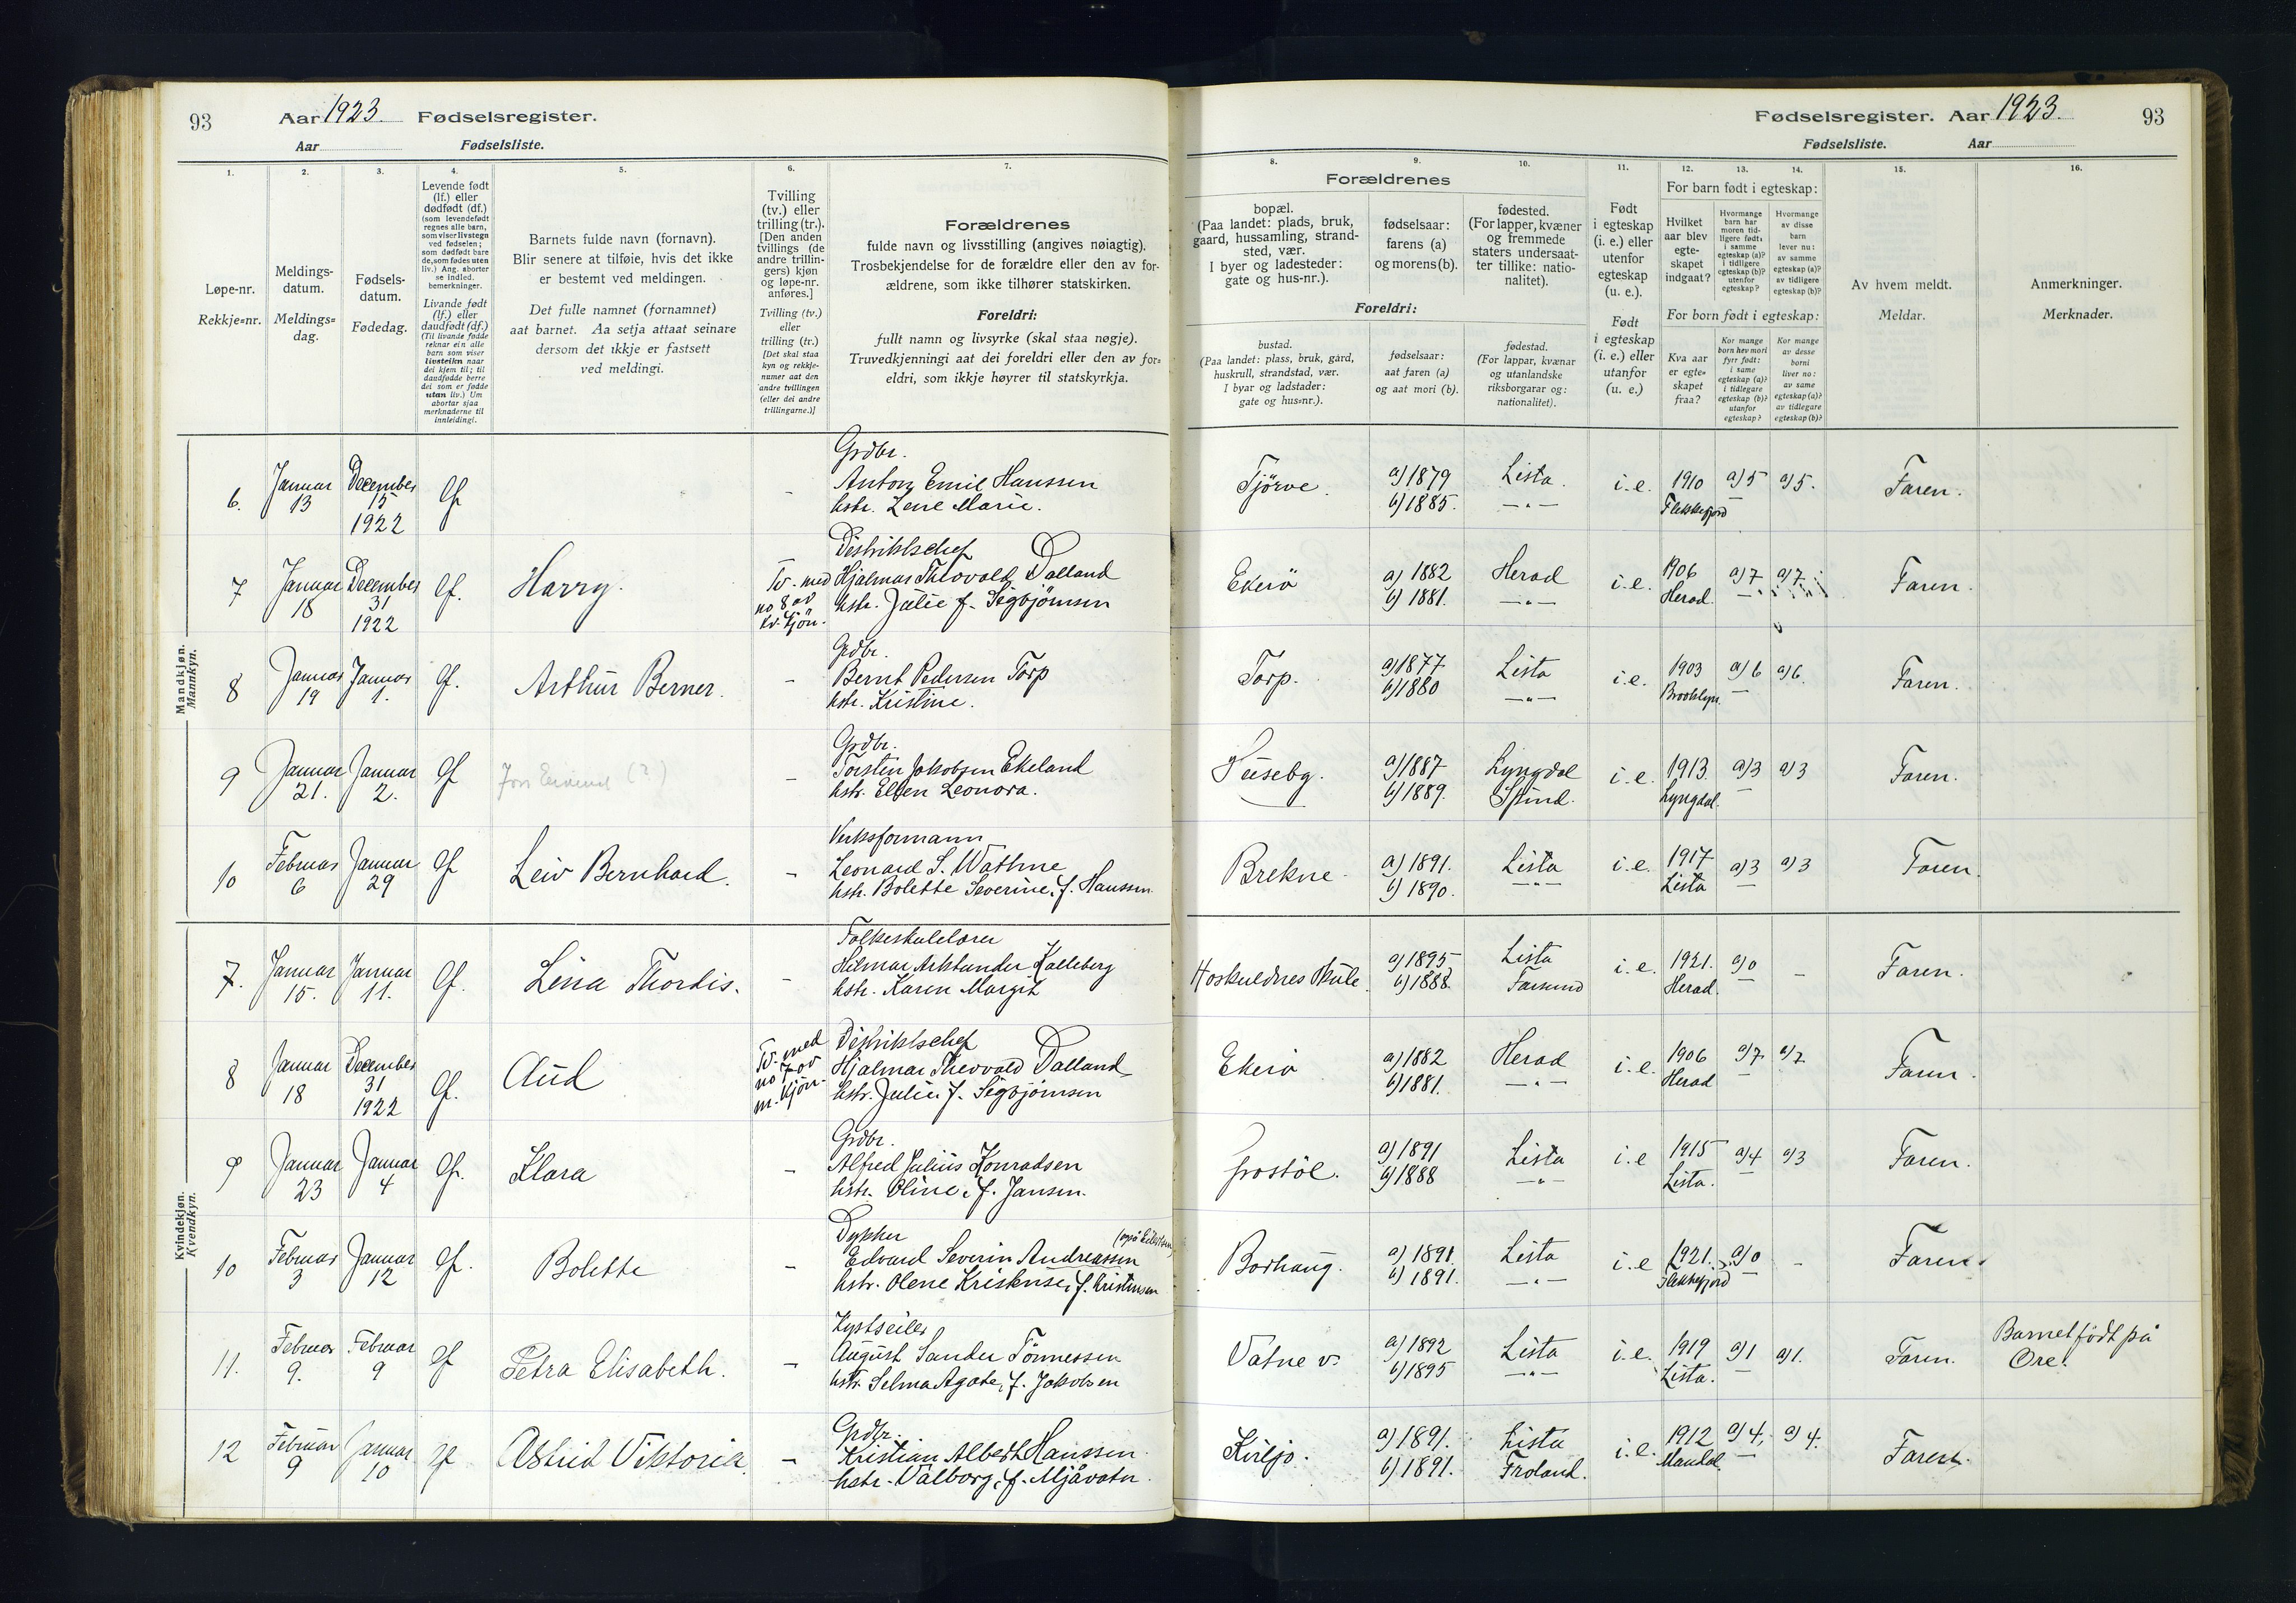 93 Aar 1923. Fødselsregister.
Aar Fødselsliste.
Fødselsregister. Aar 1923. 93
Fødselsliste. Aar
1. 2. 3. 4. 5. 6. 7.
Løpe-nr.
Rekkje=nr.
Meldings-
datum.
Meldings=
dag.
Fødsels-
datum.
Fødedag.
Levende født
(lf.) eller
dødfødt (df.)
(som levendefødt
regnes alle barn,
som viser livstegn
ved fødselen;
som dødfødt bare
de, som fødes uten
liv.) Ang. aborter
se indled.
bemerkninger.
Livande født
(lf.) eller
daudfødt (df.)
(Til livande fødde
reknar ein alle
barn som viser
livsteikn naar
dei kjem til; til
daudfødde berre
dei som er fødde
utan liv.) Um
abortar sjaa
merknaderne til
innleidingi.
Barnets fulde navn (fornavn).
Blir senere at tilføie, hvis det ikke
er bestemt ved meldingen.
Det fulle namnet (fornamnet)
aat barnet. Aa setja attaat seinare
dersom det ikkje er fastsett
ved meldingi.
Tvilling
(tv.) eller
trilling (tr.).
[Den anden
tvillings (de
andre trillin-
gers) kjøn
og løpe-nr.
anføres.]
Tvilling (tv.)
eller
trilling (tr.)
[Det skal staa
kyn og rekkje-
numer aat den
andre tvillingen
(eller dei andre
trillingarne.)]
Forældrenes
fulde navn og livsstilling (angives nøiagtig).
Trosbekjendelse for de forældre eller den av for-
ældrene, som ikke tilhører statskirken.
Foreldri:
fullt namn og livsyrke (skal staa nøgje).
Truvedkjenningi aat dei foreldri eller den av for=
eldri, som ikkje høyrer til statskyrkja.
8. 9. 10. 11. 12. 13. 14. 15. 16.
Forældrenes
bopæl.
(Paa landet: plads, bruk,
gaard, hussamling, strand-
sted, vær.
I byer og ladesteder:
gate og hus-nr.).
fødselsaar:
farens (a)
og morens (b).
fødested.
(For lapper, kvæner
og fremmede
staters undersaat-
ter tillike: natio-
nalitet).
Foreldri:
bustad.
(Paa landet: plass, bruk, gard,
huskrull, strandstad, vær.
I byar og ladstader:
gate og hus=nr.).
fødselsaar:
aat faren (a)
og aat mori (b).
fødestad.
(For lappar, kvænar
og utanlandske
riksborgarar og:
nationalitet).
Født
i egteskap
(i. e.) eller
utenfor
egteskap
(u. e.).
Født
i egteskap
(i. e.) eller
utanfor
(u. e.)
For barn født i egteskap:
Hvilket
aar blev
egte-
skapet
indgaat?
Hvormange
barn har
moren tid-
ligere født:
i samme
egteskap (a)?
i tidligere
egteskap (b)?
utenfor
egteskap?
Hvormange
av disse
barn
lever nu:
av samme
egteskap (a)?
av tidligere
egteskap (b)?
For born født i egteskap:
Kva aar
er egte=
skapet
fraa?
Kor mange
born hev mori
fyrr født:
i same
egteskap (a)?
i tidlegare
egteskap (b)?
utanfor
egteskap?
Kor mange
av desse
borni
liver no:
av same
egteskap (a)?
av tidlegare
egteskap (b)?
Av hvem meldt.
Meldar.
Anmerkninger.
Merknader.
Mandkjøn.
Mannkyn.
6. Januar 13 December 15 1922 lf - Grdbr.
Anton Emil Hanssen
hstr. Lene Marie.
Tjörve. a) 1879 b) 1885. Lista. —"— i.e. 1910 Flekkefjord a) 5 — a) 5. Faren.
7 Januar 18 December 31 1922 lf. Harry. Tv. med no 8 av kv. kjön. Distriktschef
Hjalmar Theovald Dalland
hstr. Julie f. Sigbjörnsen
Ekerö a) 1882 b) 1881. Herad —"— i.e. 1906 Herad. a) 7 — a) 7. Faren.
8 Januar 19 Januar 1. lf. Arthur Berner. - Grdbr.
Bernt Pedersen Torp
hstr. Kristine.
Torp. a) 1877 b) 1880 Lista —"— i.e. 1903 Brooklyn. a) 6 — a) 6. Faren.
9 Januar 21. Januar 2. lf (?) - Grdbr.
Torsten Jakobsen Ekeland
hstr. Ellen Leonora.
Huseby. a) 1887 b) 1889. Lyngdal Spind. i.e. 1913. Lyngdal. a) 3 — a) 3 Faren.
10 Februar 6 Januar 29 lf Leiv Bernhard. - Verksformann
Leonard S. Wathne
hstr. Bolette Severine, f. Hanssen
Brekne. a) 1891. b) 1890. Lista —"— i.e. 1917 Lista a) 3 — a) 3 Faren.
Kvindekjøn.
Kvendkyn.
7. Januar 15. Januar 11. lf. Lina Thordis. - Folkeskulelærer
Hilmar Kalleberg
hstr. Karen Margit
Hoskuldnes Skule a) 1895 b) 1888. Lista Farsund i.e. 1921. Herad. a) 0 — - Faren.
8 Januar 18 December 31 1922 lf. Aud Tv. med no 7 av m. kjön. Distriktschef
Hjalmar Theovald Dalland
hstr. Julie, f. Sigbjörnsen
Ekerö a) 1882 b) 1881. Herad —"— i.e. 1906 Herad a) 7. — a) 7. Faren.
9 Januar 23 Januar 4 lf. Klara - Grdbr.
Alfred Julius Konradsen
hstr. Oline, f. Jansen.
Frostöl. a) 1891 b) 1888 Lista —"— i.e 1915 Lista. a) 4 — a) 3 Faren.
10 Februar 3 Januar 12 lf. Bolette - Dykker
Edvard Severin Andreassen
hstr. Olene Kristense, f. Kristensen
Borhaug. a) 1891. b) 1891. Lista —"— i.e 1921. Flekkefjord a) 0 — - Faren.
11. Februar 9. Februar 9 lf Petra Elisabeth. - Kystseiler
August Sander Tönnessen
hstr. Selma Agate, f. Jakobsen
Vatne v. a) 1892 b) 1895 Lista —"— i.e. 1919 Lista. a) 1 — a) 1. Faren. Barnet født på
Øre.
12 Februar 9 Januar 10 lf Astrid Viktoria. - Grdbr.
Kristian Albert Hanssen
hstr. Valborg, f. Mjåvatn.
Kiljo. a) 1891. b) 1891. Lista Froland. i.e. 1912 Mandal. a) 4, — a) 4. Faren.